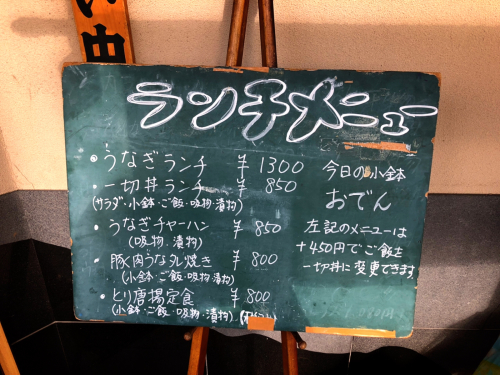 い中
ランチメニュー
・うなぎランチ ¥1300
・一切丼ランチ ¥850
(サラダ・小鉢・ご飯・吸物・漬物)
・うなぎチャーハン ¥850
(吸物・漬物)
・豚肉うなタレ焼き ¥800
(小鉢・ご飯・吸物・漬物)
・とり唐揚定食 ¥800
(小鉢・ご飯・吸物・漬物)
今日の小鉢
おでん
左記のメニューは
+450円でご飯を
一切丼に変更できます